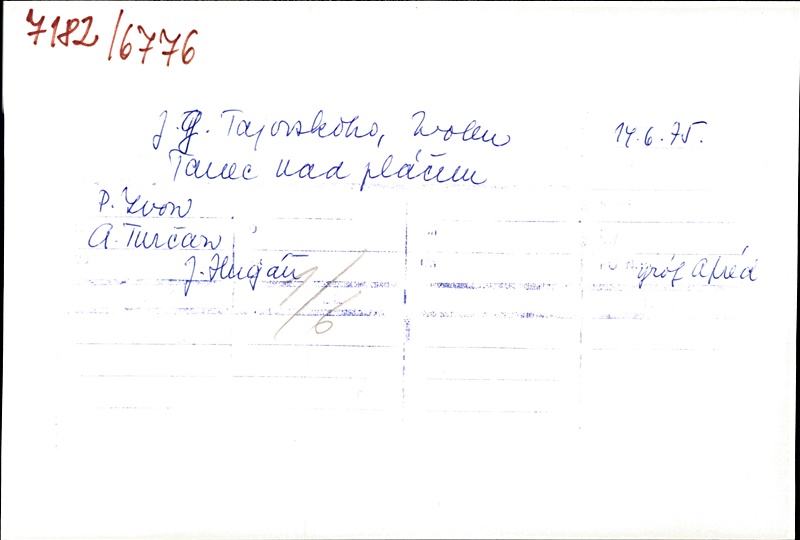 7182/6776
J. G. Tajovského, Zvolen 14.6.75.
Tanec nad pláčem
P. Zvon
A. Turčan
J. Hugáň gróf Alfréd
1/6